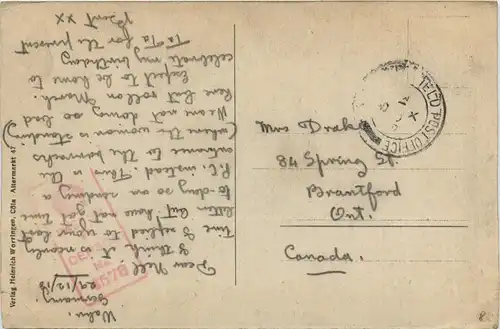 Wahn.
Germany.
29/12/18
Dear Nell.
I think it is nearly
time I replied to your last
letter but have not got time
to-day so am sending a
P.C. instead. This is the
entrance to the barracks
(where the woman is standing)
We are not doing so bad
here but roll on March.
Expect to be home to
celebrate my birthday
Ta Ta for the present
Bert xx
Mrs Drake
84 Spring St.
Brantford
Ont.
Canada.
FIELD POST OFFICE
Verlag Heinrich Worringen, Cöln, Altermarkt 47